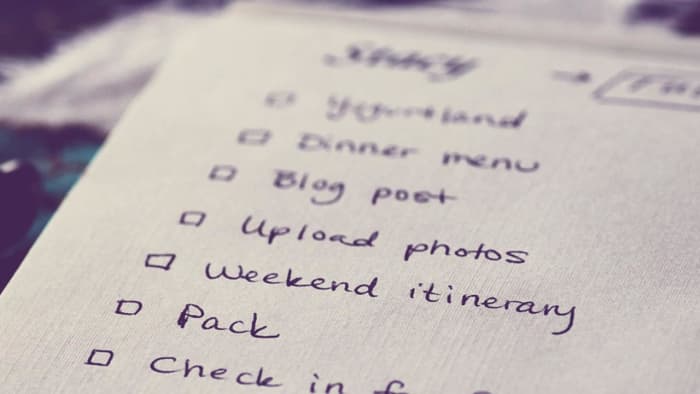 Yogurtland
Dinner menu
Blog post
Upload photos
Weekend itinerary
Pack
Check in